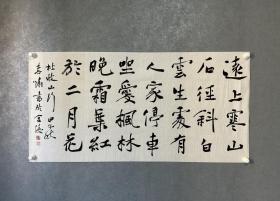 遠上寒山
石徑斜白
雲生處有
人家停車
坐愛楓林
晚霜葉紅
於二月花
杜牧山行
書於金陵